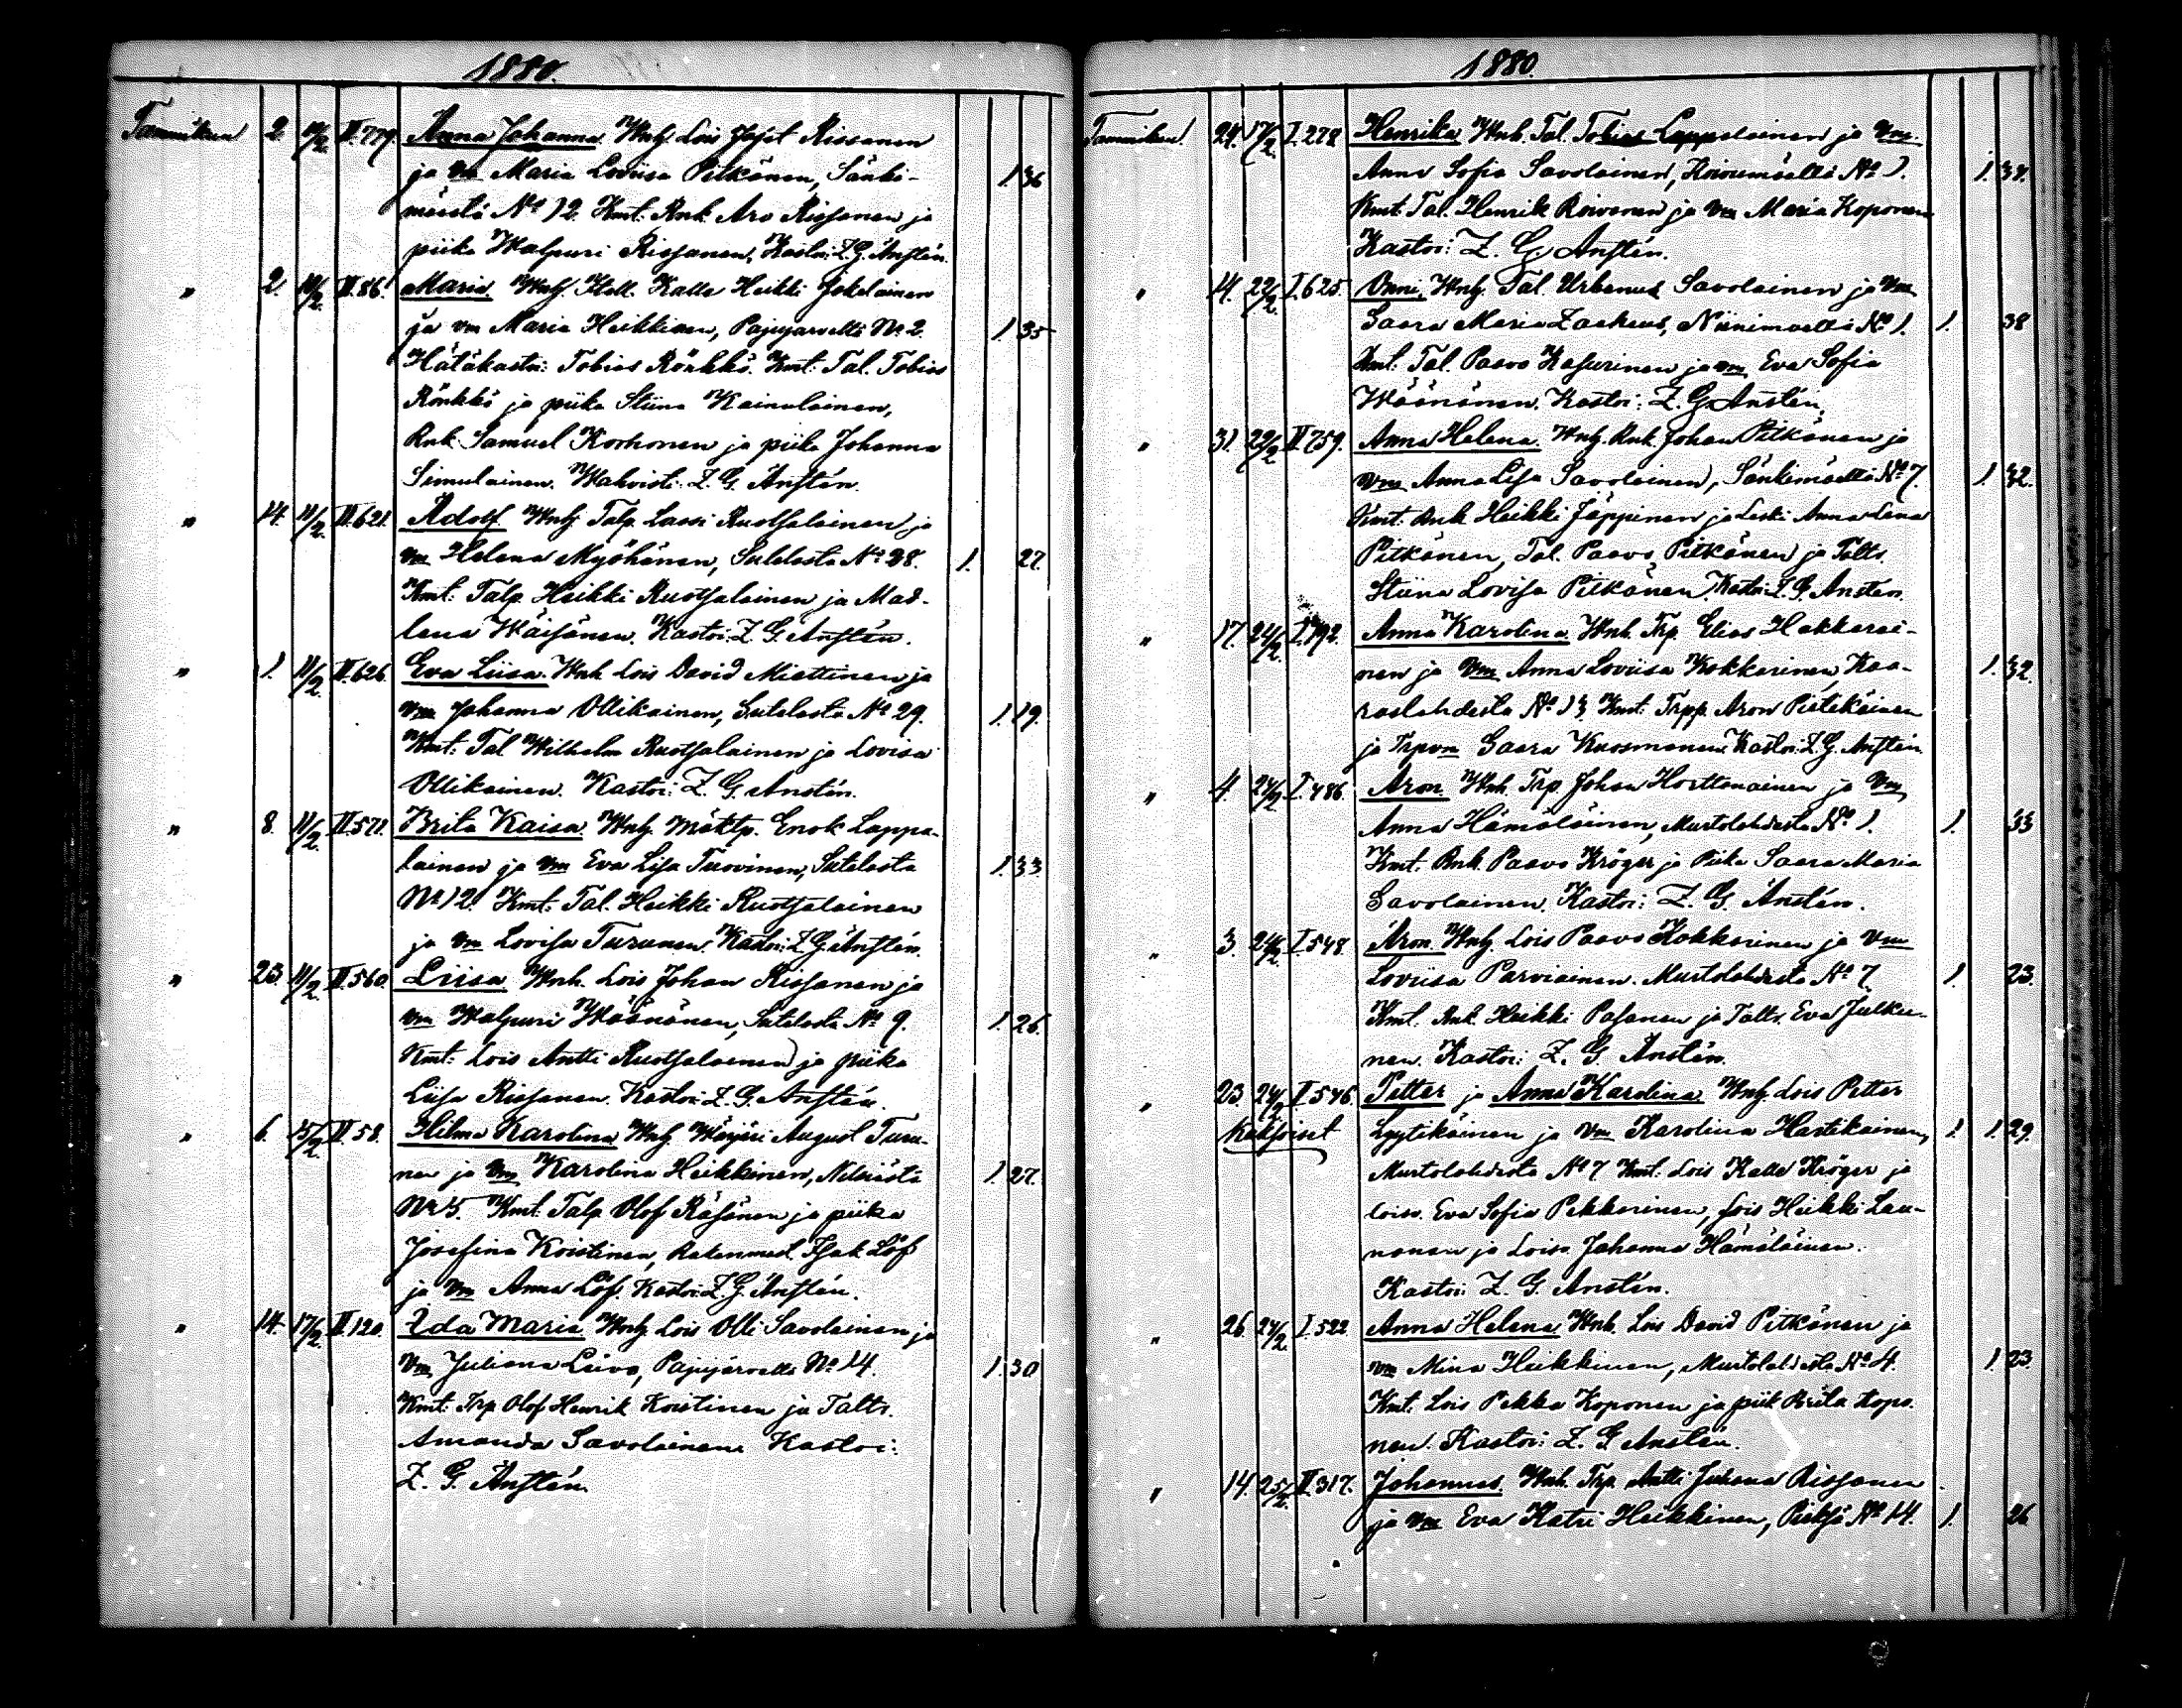 1880.
Tammikuu 2 10/2 II.779. Anna Johanna. Wnh. Lois Josef Rissanen
ja vm Maria Loviisa Pitkänen, Sänki- 1. 36
mäestä No 12. Kmt. Rnk. Aro Rissanen ja
piika Walpuri Rissanen. Kastoi: Z. G. Anstén.
" 2. 10/2 II.86. Maria. Wnh. Itell. Kalle Heikki Jokelainen
ja vm Maria Heikkinen, Pajujärveltä No 2. 1. 35
Hätäkastoi: Tobias Rönkkö. Kmt: Tal. Tobias
Rönkkö ja piika Stiina Kainulainen,
Rnk. Samuel Korhonen ja piika Johanna
Simulainen. Wahvisti Z. G. Anstén.
" 14. 11/2 II.621. Adolf. Wnh. Talp. Lassi Ruotsalainen ja
vm Helena Myöhänen, Sutelasta No 28. 1. 27.
Kmt: Talp. Heikki Ruotsalainen ja Mad-
lena Wäisänen. Kastoi: Z. G. Anstén.
" 1. 11/2 II.626. Eva Liisa. Wnh. Lois David Miettinen ja
vm Johanna Ollikainen, Sutelasta No 29. 1. 19.
Kmt: Tal. Wilhelm Ruotsalainen ja Lovisa
Ollikainen. Kastoi: Z. G. Anstén.
" 8. 11/2 II.571. Brita Kaisa. Wnh. Mäktp. Enok Lappa-
lainen ja vm Eva Lisa Tuovinen, Sutelasta 1. 33.
No 12. Kmt: Tal. Heikki Ruotsalainen
ja vm Lovisa Turunen. Kastoi: Z. G. Anstén.
" 23. 11/2 II.560. Liisa. Wnh. Lois Johan Rissanen ja
vm Walpuri Wäänänen, Sutelasta No 9. 1. 26.
Kmt: Lois Antti Ruotsalainen ja piika
Liisa Rissanen. Kastoi: Z. G. Anstén.
" 6. 15/2 II.58. Hilma Karolina. Wnh. Wärjäri August Turu-
nen ja vm Karolina Heikkinen, Nilsiästä 1. 27.
No 5. Kmt. Talp. Olof Räsänen ja piika
Josefina Koistinen, Rakenmest. Isak Löf
ja vm Anna Löf. Kastoi: Z. G. Anstén.
" 14. 17/2 II.120. Ida Maria. Wnh. Lois Olli Savolainen ja
vm Juliana Leivo, Pajujärveltä No 14. 1. 30
Kmt. Trp. Olof Henrik Koistinen ja Talts.
Amanda Savolainen. Kastoi:
Z. G. Anstén.
1880.
Tammikuu. 24. 17/2 I.278. Henrika. Wnh. Tal. Tobias Lappalainen ja vm.
Anna Sofia Savolainen, Koivumäeltä No 1. 1. 34.
Kmt. Tal. Henrik Roivanen ja vm Maria Koponen
Kastoi: Z. G. Anstén.
" 14. 22/2 I.625. Onni. Wnh. Tal. Urbanus Savolainen ja vm
Saara Maria Zackeus, Niinimäeltä No 1. 1. 38
Kmt: Tal. Paavo Kasurinen ja vm Eva Sofia
Wäänänen. Kastoi: Z. G. Anstén.
" 31. 22/2 II.759. Anna Helena. Wnh. Rnk. Johan Pitkänen ja
vm Anna Lisa Savolainen, Sänkimäeltä No 7. 1. 32.
Kmt: Rnk. Heikki Jäppinen ja Leski Anna Lena
Pitkänen, Tal. Paavo Pitkänen ja Talts.
Stiina Lovisa Pitkänen. Kastoi: Z. G. Anstén.
" 17. 24/2 I.792. Anna Karolina. Wnh. Trp. Elias Hakkarai-
nen ja vm Anna Loviisa Kokkarinen, Kaa- 1. 32.
raslahdesta No 13. Kmt: Trpp. Aron Pietikäinen
ja Trpvm Saara Kuosmanen. Kastoi: Z. G. Anstén.
" 4. 24/2 I.486. Aron. Wnh. Trp. Johan Horttanainen ja vm
Anna Hämäläinen, Murtolahdesta No 1. 1. 33
Kmt. Rnk. Paavo Kröger ja Piika Saara Maria
Savolainen. Kastoi: Z. G. Anstén.
" 3. 24/2 I.548. Aron. Wnh. Lois Paavo Kokkarinen ja vm
Loviisa Parviainen. Murtolahdesta No 7. 1. 23.
Kmt. Rnk. Heikki Pasanen ja Talts. Eva Julku-
nen. Kastoi: Z. G. Anstén.
" 23. 24/2 I.546. Petter ja Anna Karolina. Wnh. Lois Petter
Kaksoiset Lyytikäinen ja vm Karolina Hartikainen, 1. 1. 29.
Murtolahdesta No 7. Kmt: Lois Kalle Kröger ja
loisv. Eva Sofia Pekkarinen, Lois Heikki Lau-
nonen ja Loisv. Johanna Hämäläinen.
Kastoi: Z. G. Anstén.
" 26. 24/2 I.522. Anna Helena. Wnh. Lois David Pitkänen ja
vm Mina Heikkinen, Murtolahdesta No 4. 1. 23.
Kmt: Lois Pekka Koponen ja piik. Brita Kopo-
nen. Kastoi: Z. G. Anstén.
" 14. 25/2 II.317. Johannes. Wnh. Trp. Antti Juhana Rissanen
ja vm Eva Katri Heikkinen, Pieksä No 14. 1. 26